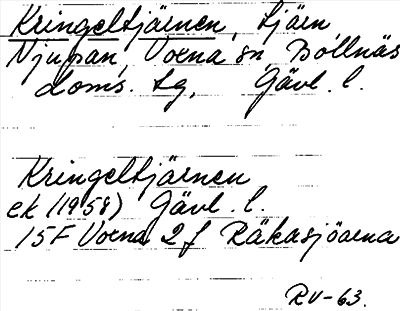 Kringeltjärnen, tjärn
Njupan, Voxna sn, Bollnäs
doms. tg, Gävl. l.
Kringeltjärnen
ek (1958) Gävl. l.
15F Voxna 2 f Räkasjöarna
RV-63.